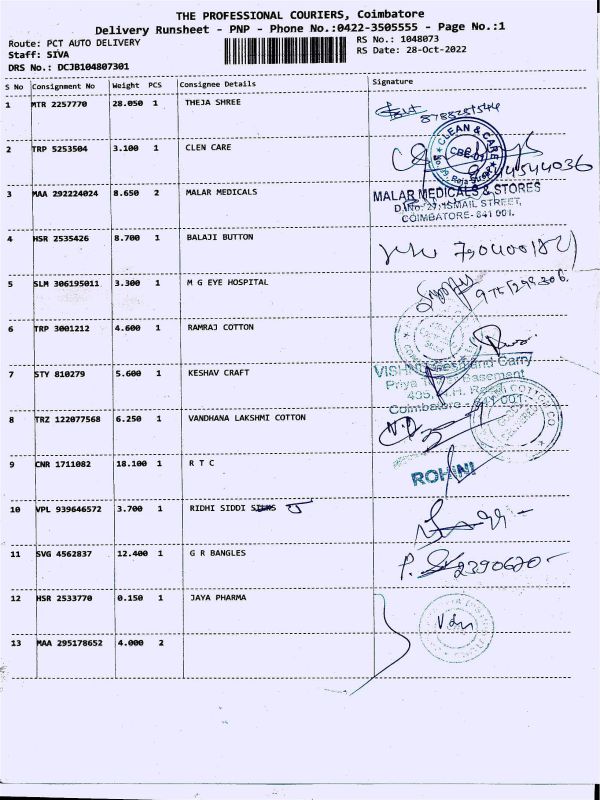 THE PROFESSIONAL COURIERS, Coimbatore
Delivery Runsheet - PNP - Phone No.:0422-3505555 - Page No.:1
Route: PCT AUTO DELIVERY
RS No.: 1048073
Staff: SIVA
RS Date: 28-Oct-2022
DRS No.: DCJB104807301
S No Consignment No Weight PCS Consignee Details Signature
1 MTR 2257770 28.050 1 THEJA SHREE
2 TRP 5253504 3.100 1 CLEN CARE
CLEAN & CARE
CBE-01
3 MAA 292224024 8.650 2 MALAR MEDICALS
MALAR MEDICALS & STORES
D.No. 27, ISMAIL STREET,
COIMBATORE- 641 001.
4 HSR 2535426 8.700 1 BALAJI BUTTON
5 SLM 306195011 3.300 1 M G EYE HOSPITAL
6 TRP 3001212 4.600 1 RAMRAJ COTTON
7 STY 810279 5.600 1 KESHAV CRAFT
and Carry
Priya Basement
Coimbatore - 641 001.
8 TRZ 122077568 6.250 1 VANDHANA LAKSHMI COTTON
9 CNR 1711082 18.100 1 R T C
ROHINI
10 VPL 939646572 3.700 1 RIDHI SIDDI SILKS
11 SVG 4562837 12.400 1 G R BANGLES
12 HSR 2533770 0.150 1 JAYA PHARMA
13 MAA 295178652 4.000 2